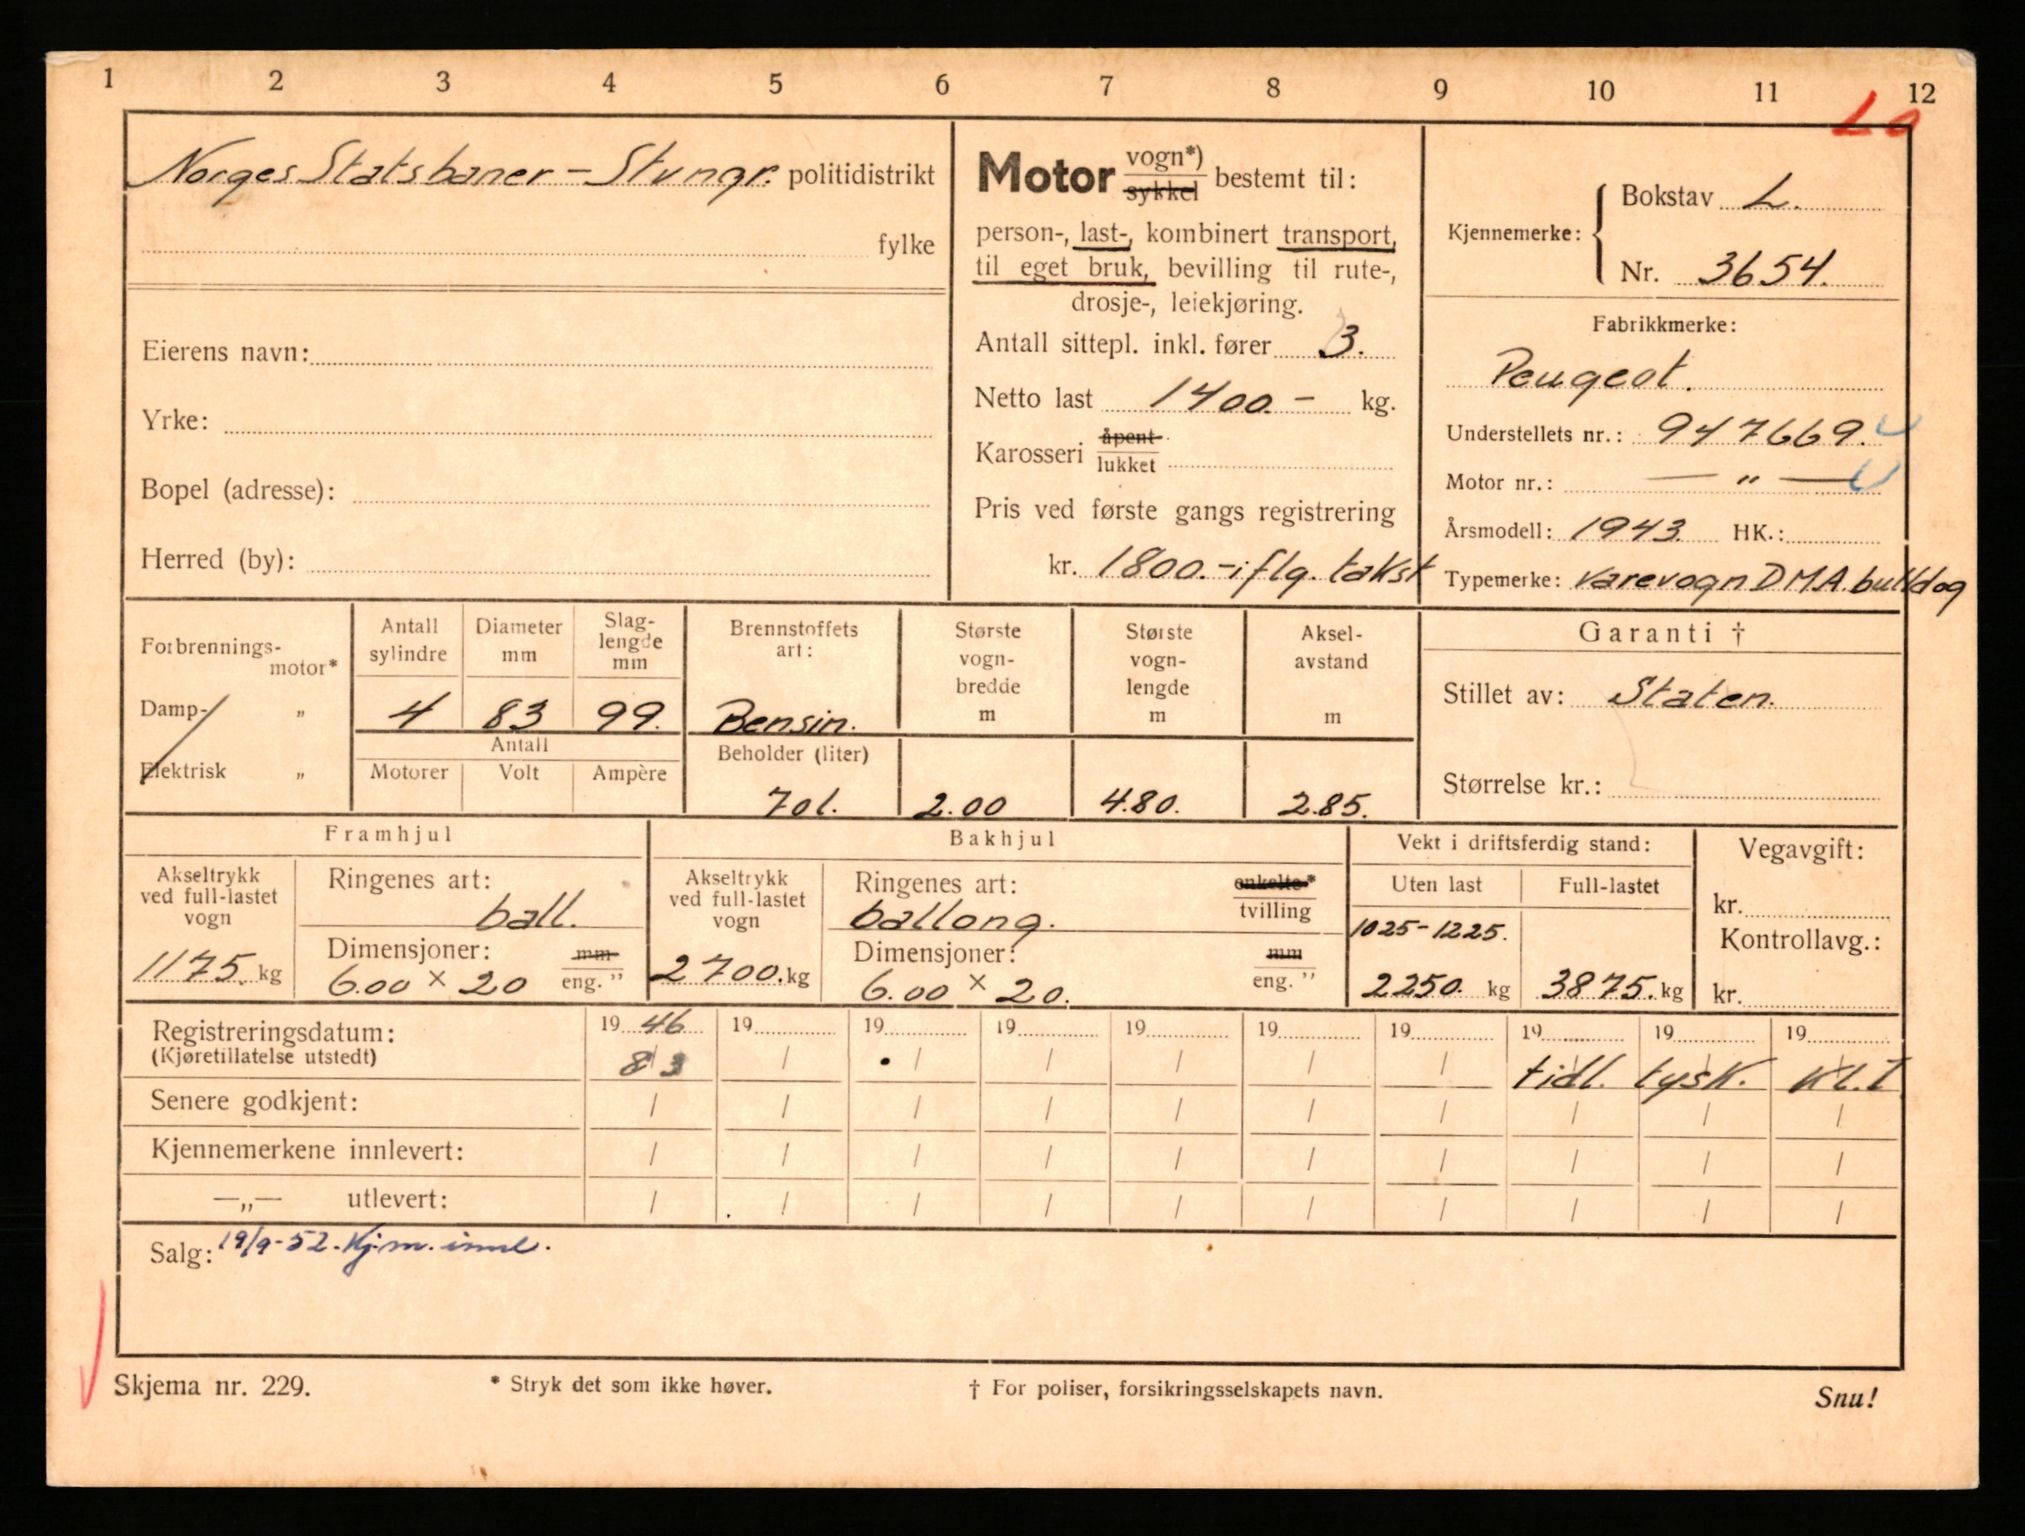 1 2 3 4 5 6 7 8 9 10 11 12
Norges Statsbaner - Stvngr. politidistrikt
fylke
Eierens navn:
Yrke:
Bopel (adresse):
Herred (by):
Motor vogn*) sykkel bestemt til:
person-, last-, kombinert transport,
til eget bruk, bevilling til rute-,
drosje-, leiekjøring.
Antall sittepl. inkl. fører 3.
Netto last 1400.- kg.
Karosseri åpent lukket
Pris ved første gangs registrering
kr. 1800.- iflg. takst
Kjennemerke: Bokstav L.
Nr. 3654.
Fabrikkmerke:
Peugeot.
Understellets nr.: 947669.
Motor nr.: — " —
Årsmodell: 1943. HK.:
Typemerke: varevogn DMA. bulldog
Forbrennings-motor*
Damp- „
Elektrisk „
Antall sylindre
4
Diameter mm
83
Slag-lengde mm
99.
Antall
Motorer Volt Ampère
Brennstoffets art:
Bensin.
Beholder (liter)
70 l.
Største vogn-bredde m
2.00
Største vogn-lengde m
4.80.
Aksel-avstand m
2.85.
Garanti †
Stillet av: Staten.
Størrelse kr.:
Framhjul
Akseltrykk ved full-lastet vogn
1175. kg
Ringenes art:
ball.
Dimensjoner: mm
6.00 x 20 eng. "
Bakhjul
Akseltrykk ved full-lastet vogn
2700. kg
Ringenes art: enkelte*
ballong. tvilling
Dimensjoner: mm
6.00 x 20. eng. "
Vekt i driftsferdig stand:
Uten last Full-lastet
1025-1225.
2250. kg 3875. kg
Vegavgift:
kr.
Kontrollavg.:
kr.
Registreringsdatum: 19 46 19 19 19 19 19 19 19 19 19
(Kjøretillatelse utstedt) 8/3 / / / / / / tidl. tysk. kl. I
Senere godkjent: / / / / / / / / / /
Kjennemerkene innlevert: / / / / / / / / / /
—„— utlevert: / / / / / / / / / /
Salg: 19/9-52. Kj.m. innl.
Skjema nr. 229. * Stryk det som ikke høver. † For poliser, forsikringsselskapets navn. Snu!